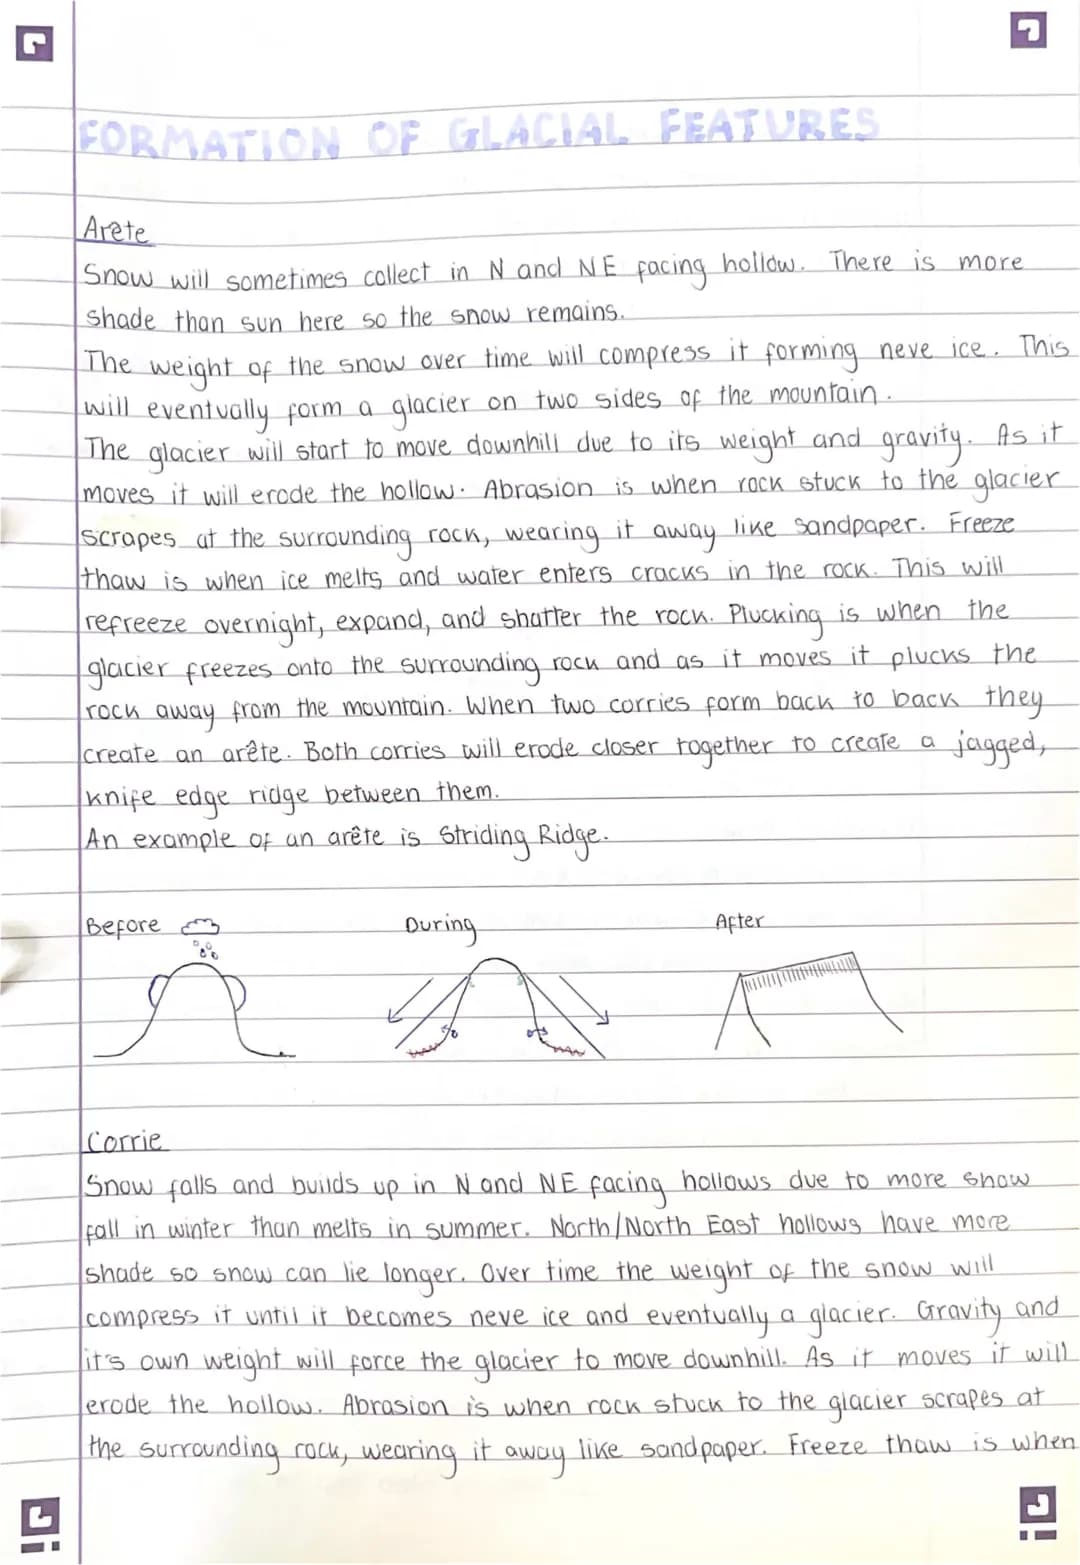 FORMATION OF GLACIAL FEATURES
Arête
Snow will sometimes collect in N and NE facing hollow. There is more
shade than sun here so the snow remains.
The weight of the snow over time will compress it forming neve ice. This
will eventually form a glacier on two sides of the mountain.
The glacier will start to move downhill due to its weight and gravity. As it
moves it will erode the hollow. Abrasion is when rock stuck to the glacier
scrapes at the surrounding rock, wearing it away like sandpaper. Freeze
thaw is when ice melts and water enters cracks in the rock. This will
refreeze overnight, expand, and shatter the rock. Plucking is when the
glacier freezes onto the surrounding rock and as it moves it plucks the
rock away from the mountain. When two corries form back to back they
create an arête. Both corries will erode closer together to create a jagged,
knife edge ridge between them.
An example of an arête is Striding Ridge.
Before During After
Corrie
Snow falls and builds up in N and NE facing hollows due to more snow
fall in winter than melts in summer. North/North East hollows have more
shade so snow can lie longer. Over time the weight of the snow will
compress it until it becomes neve ice and eventually a glacier. Gravity and
it's own weight will force the glacier to move downhill. As it moves it will
erode the hollow. Abrasion is when rock stuck to the glacier scrapes at
the surrounding rock, wearing it away like sandpaper. Freeze thaw is when